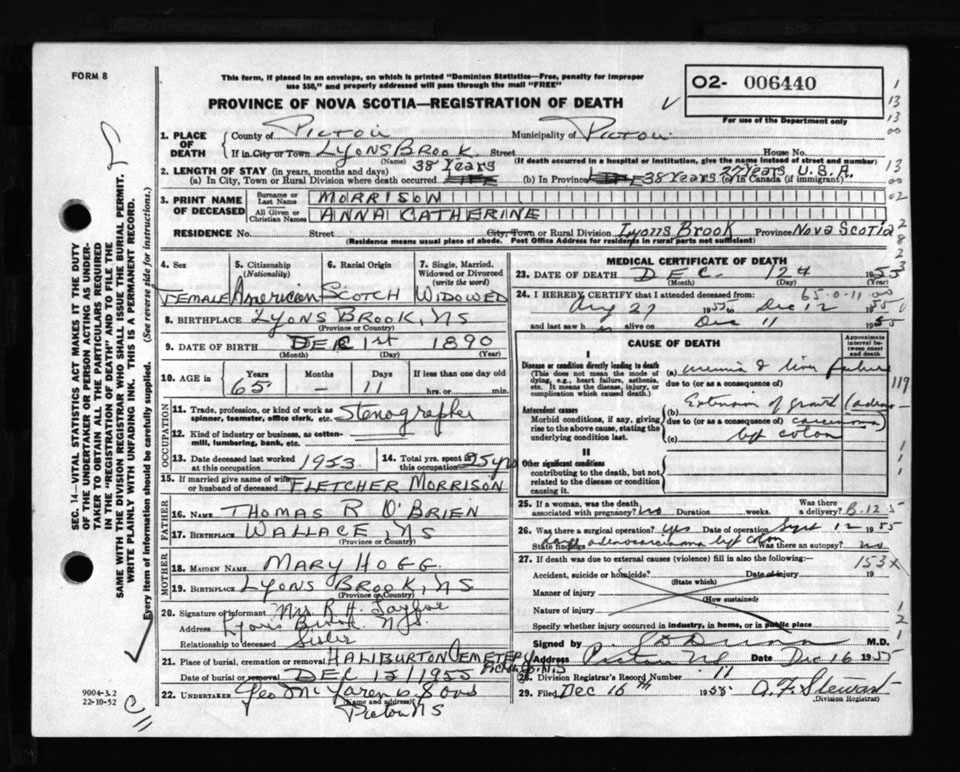 FORM 8
This form, if placed in an envelope, on which is printed "Dominion Statistics—Free, penalty for improper
use $50," and properly addressed will pass through the mail "FREE"
PROVINCE OF NOVA SCOTIA—REGISTRATION OF DEATH
02- 006440
For use of the Department only
1. PLACE OF DEATH County of PICTOU Municipality of PICTOU
If in City or Town LYONS BROOK Street House No.
(Name) (If death occurred in a hospital or institution, give the name instead of street and number)
2. LENGTH OF STAY (in years, months and days)
(a) In City, Town or Rural Division where death occurred 38 Years (b) In Province LIFE 38 Years (c) In Canada (if immigrant) 27 Years U.S.A.
3. PRINT NAME OF DECEASED
Surname or Last Name MORRISON
All Given or Christian Names ANNA CATHERINE
RESIDENCE No. Street City, Town or Rural Division Lyons Brook Province Nova Scotia
(Residence means usual place of abode. Post Office Address for residents in rural parts not sufficient)
4. Sex FEMALE
5. Citizenship (Nationality) American
6. Racial Origin SCOTCH
7. Single, Married, Widowed or Divorced (write the word) WIDOWED
8. BIRTHPLACE LYONS BROOK, NS
(Province or Country)
9. DATE OF BIRTH DEC 1st 1890
(Month) (Day) (Year)
10. AGE in Years 65 Months – Days 11 If less than one day old hrs. or min.
OCCUPATION
11. Trade, profession, or kind of work as spinner, teamster, office clerk, etc. Stenographer
12. Kind of industry or business, as cotton-mill, lumbering, bank, etc.
13. Date deceased last worked at this occupation 1953
14. Total yrs. spent in this occupation 25 yrs
15. If married give name of wife or husband of deceased FLETCHER MORRISON
FATHER
16. NAME THOMAS R O'BRIEN
17. BIRTHPLACE WALLACE, NS
(Province or Country)
MOTHER
18. MAIDEN NAME MARY HOGG.
19. BIRTHPLACE LYONS BROOK, NS
(Province or Country)
20. Signature of informant Mrs R. H.
Address Lyons Brook. N.S.
Relationship to deceased Sister
21. Place of burial, cremation or removal HALIBURTON CEMETERY PICTOU CO. N.S.
Date of burial or removal DEC 15/1955
22. UNDERTAKER Geo McLaren & Sons
(Name and address)
Pictou NS
MEDICAL CERTIFICATE OF DEATH
23. DATE OF DEATH DEC. 12th 1955
(Month) (Day)
24. I HEREBY CERTIFY that I attended deceased from: 65-0-11
Aug 27 1955 to Dec 12 1955
and last saw h alive on Dec 11 1955
CAUSE OF DEATH
Approximate interval between onset and death
I
Disease or condition directly leading to death
(This does not mean the mode of dying, e.g., heart failure, asthenia, etc. It means the disease, injury, or complication which caused death.)
(a) uremia & liver failure
due to (or as a consequence of)
Antecedent causes
Morbid conditions, if any, giving rise to the above cause, stating the underlying condition last.
(b) Extension of growth (adeno-
due to (or as a consequence of) carcinoma)
(c) left colon
119
II
Other significant conditions
contributing to the death, but not related to the disease or condition causing it.
25. If a woman, was the death associated with pregnancy? no Duration weeks. Was there a delivery?
B-12-55
26. Was there a surgical operation? yes Date of operation Sept 12 1955
State findings adenocarcinoma left colon Was there an autopsy? no
153X
27. If death was due to external causes (violence) fill in also the following:
Accident, suicide or homicide? Date of injury 19
(State which)
Manner of injury
(How sustained)
Nature of injury
Specify whether injury occurred in industry, in home, or in public place
Signed by M.D.
Address Pictou NS Date Dec 16 1955
28. Division Registrar's Record Number 11
29. Filed Dec 16th 1955 A. F. Stewart
(Division Registrar)
SEC. 14—VITAL STATISTICS ACT MAKES IT THE DUTY
OF THE UNDERTAKER OR PERSON ACTING AS UNDER-
TAKER TO OBTAIN ALL THE PARTICULARS REQUIRED
IN THE "REGISTRATION OF DEATH" AND TO FILE THE
SAME WITH THE DIVISION REGISTRAR WHO SHALL ISSUE THE BURIAL PERMIT.
WRITE PLAINLY WITH UNFADING INK. THIS IS A PERMANENT RECORD.
Every item of information should be carefully supplied. (See reverse side for instructions.)
9004-3.2
22-10-52